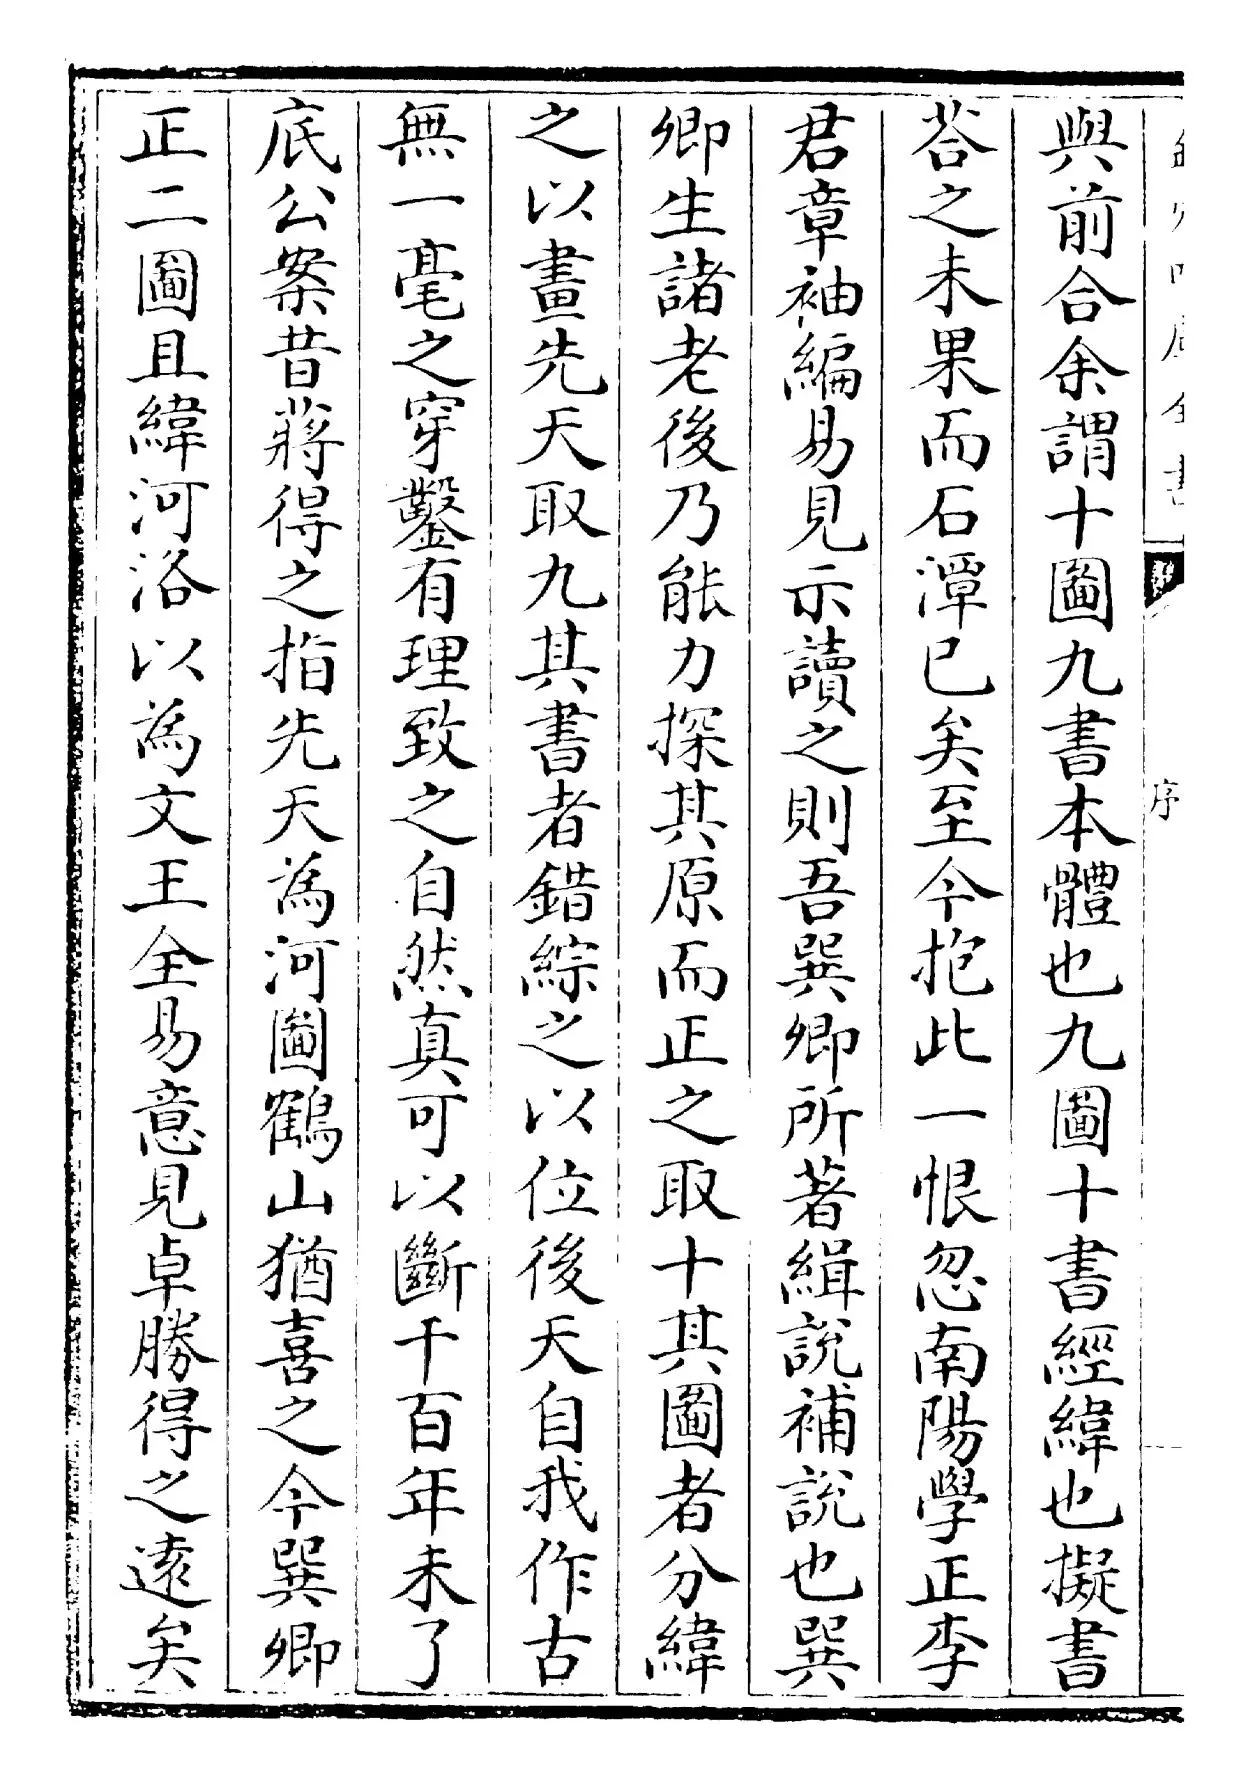 欽定四庫全書
序
與前合余謂十圖九書本體也九圖十書經緯也擬書
荅之未果而石潭已矣至今抱此一恨忽南陽學正李
君章袖編易見示讀之則吾巽卿所著緝說補說也巽
卿生諸老後乃能力探其原而正之取十其圖者分緯
之以畫先天取九其書者錯綜之以位後天自我作古
無一毫之穿鑿有理致之自然真可以斷千百年未了
底公案昔蔣得之指先天為河圖鶴山猶喜之今巽卿
正二圖且緯河洛以為文王全易意見卓勝得之遠矣